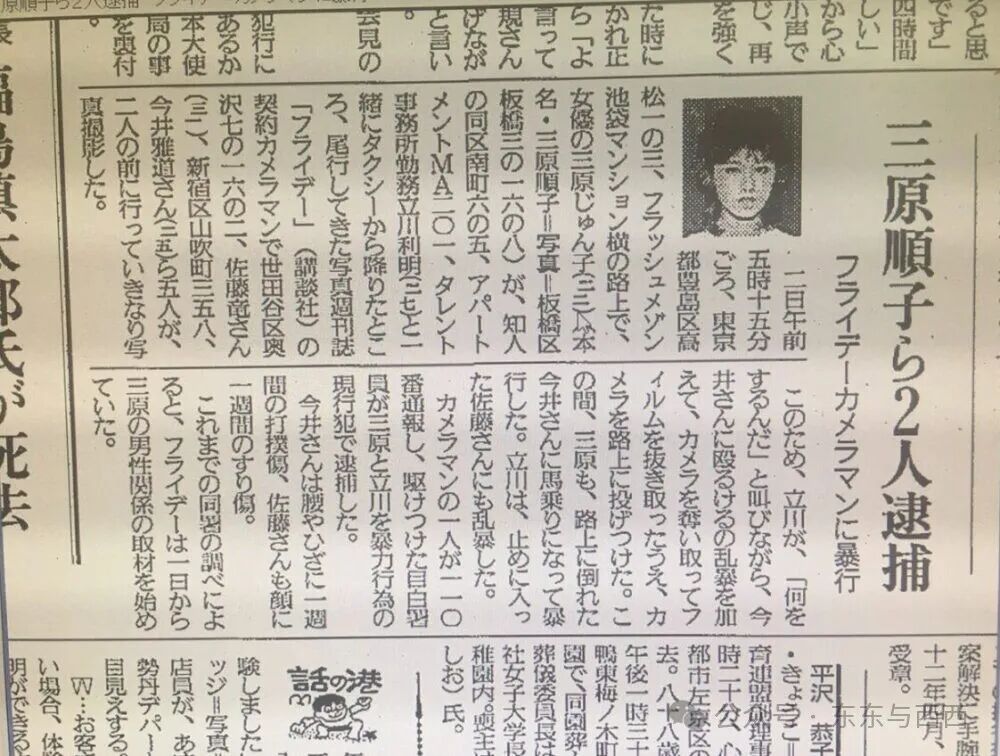 ると思
です」
四時間
しい」
から心
小声で
じ、再
を強く
た時に
かれ正
ら「よ
言って
規さん
げなが
と言い
。
会見の
犯行に
あるか
本大使
局の事
三原順子ら2人逮捕
フライデーカメラマンに暴行
二日午前
五時十五分
ごろ、東京
都豊島区高
松一の三、フラッシュメゾン
池袋マンション横の路上で、
女優の三原じゅん子(二二)(本
名・三原順子=写真=板橋区
板橋三の一六の八)が、知人
の同区南町六の五、アパート
メントMA二〇一、タレント
事務所勤務立川利明(二七)と一
緒にタクシーから降りたとこ
ろ、尾行してきた写真週刊誌
「フライデー」(講談社)の
契約カメラマンで世田谷区奥
沢七の一六の二、佐藤竜さん
(三一)、新宿区山吹町三五八、
今井雅道さん(二五)ら五人が、
二人の前に行っていきなり写
真撮影した。
このため、立川が、「何を
するんだ」と叫びながら、今
井さんに殴るけるの乱暴を加
えて、カメラを奪い取ってフ
ィルムを抜き取ったうえ、カ
メラを路上に投げつけた。こ
の間、三原も、路上に倒れた
今井さんに馬乗りになって暴
行した。立川は、止めに入っ
た佐藤さんにも乱暴した。
カメラマンの一人が一一〇
番通報し、駆けつけた目白署
員が三原と立川を暴力行為の
現行犯で逮捕した。
今井さんは腰やひざに一週
間の打撲傷、佐藤さんも顔に
一週間のすり傷。
これまでの同署の調べによ
ると、フライデーは一日から
三原の男性関係の取材を始め
ていた。
案解決に手腕
十二年四月、
受章。
平沢 恭子
・きょうこ
育連盟副理事
時二十分、心
都市左京区の
去。八十八歳
午後一時三十
鴨東梅ノ木町
園で、同園葬
葬儀委員長は
社女子大学長
稚園内。喪主は
しお)氏。
話の港
験しました
ッジ=写真
店員が、あ
勢丹デパー
目見えする。
W…お客
い場合、体験
明ができる
东东与西西